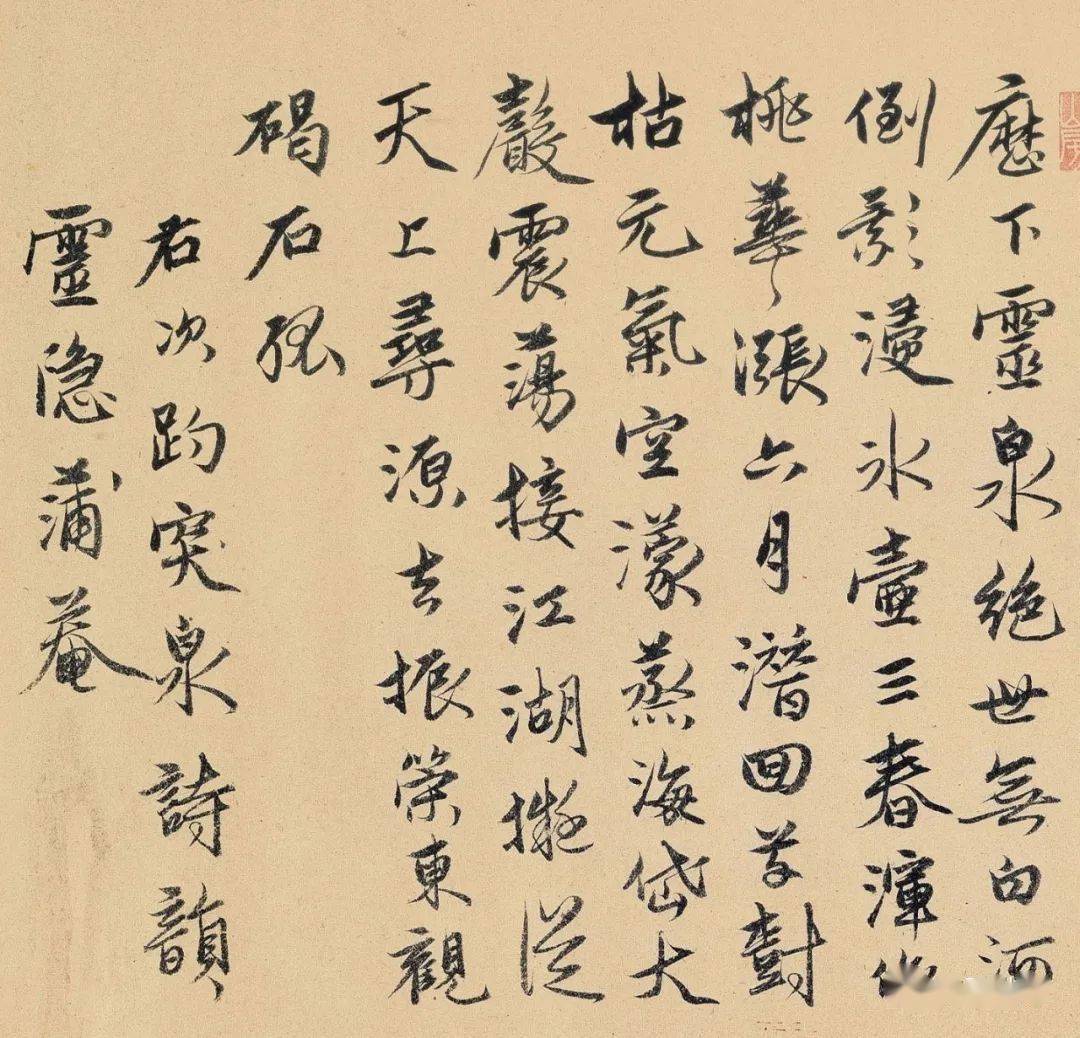 歷下靈泉絕世無白河
倒影浸氷壺三春渾作
桃華漲六月潛回草樹
枯元氣空濛蒸海岱大
聲震蕩接江湖擬從
天上尋源去振策東觀
碣石孤
右次趵突泉詩韻
靈隱蒲菴